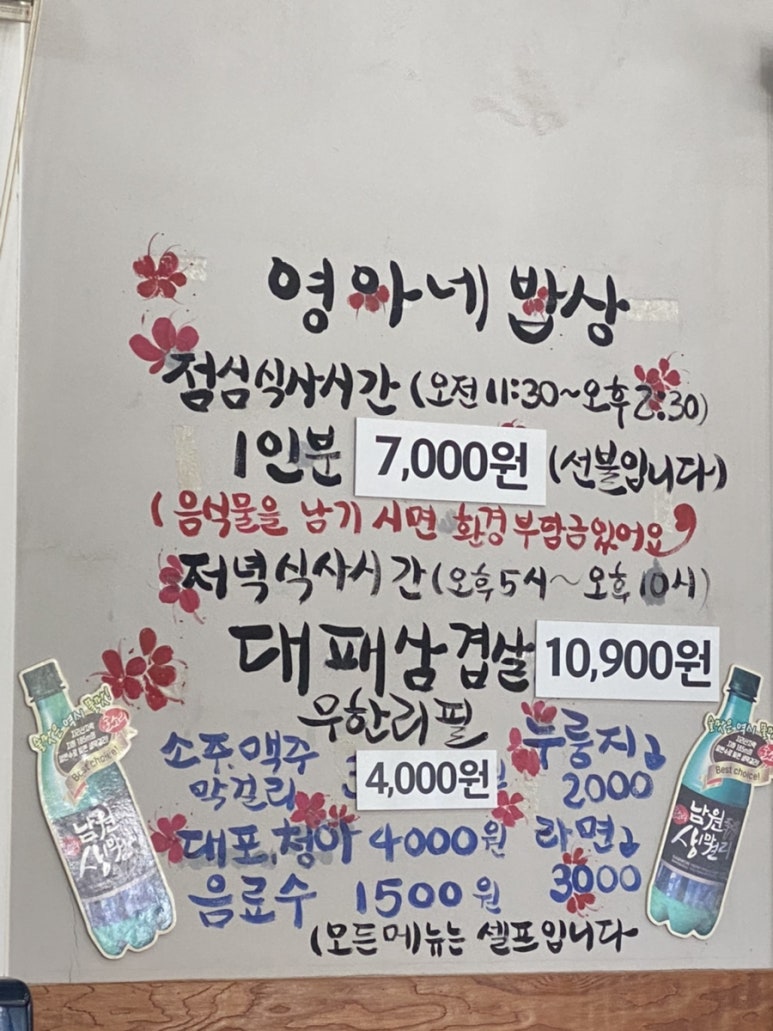 영아네 밥상
점심식사시간 (오전 11:30~오후 2:30)
1인분 7,000원 (선불입니다)
(음식물을 남기시면 환경부담금있어요)
저녁식사시간 (오후 5시~오후 10시)
대패삼겹살 10,900원
무한리필
소주.맥주
막걸리 4,000원
누룽지
2000
대포,청하 4000원
라면
3000
음료수 1500원
(모든메뉴는 셀프입니다
Best choice!
남원
생막걸리
Best choice!
남원
생막걸리